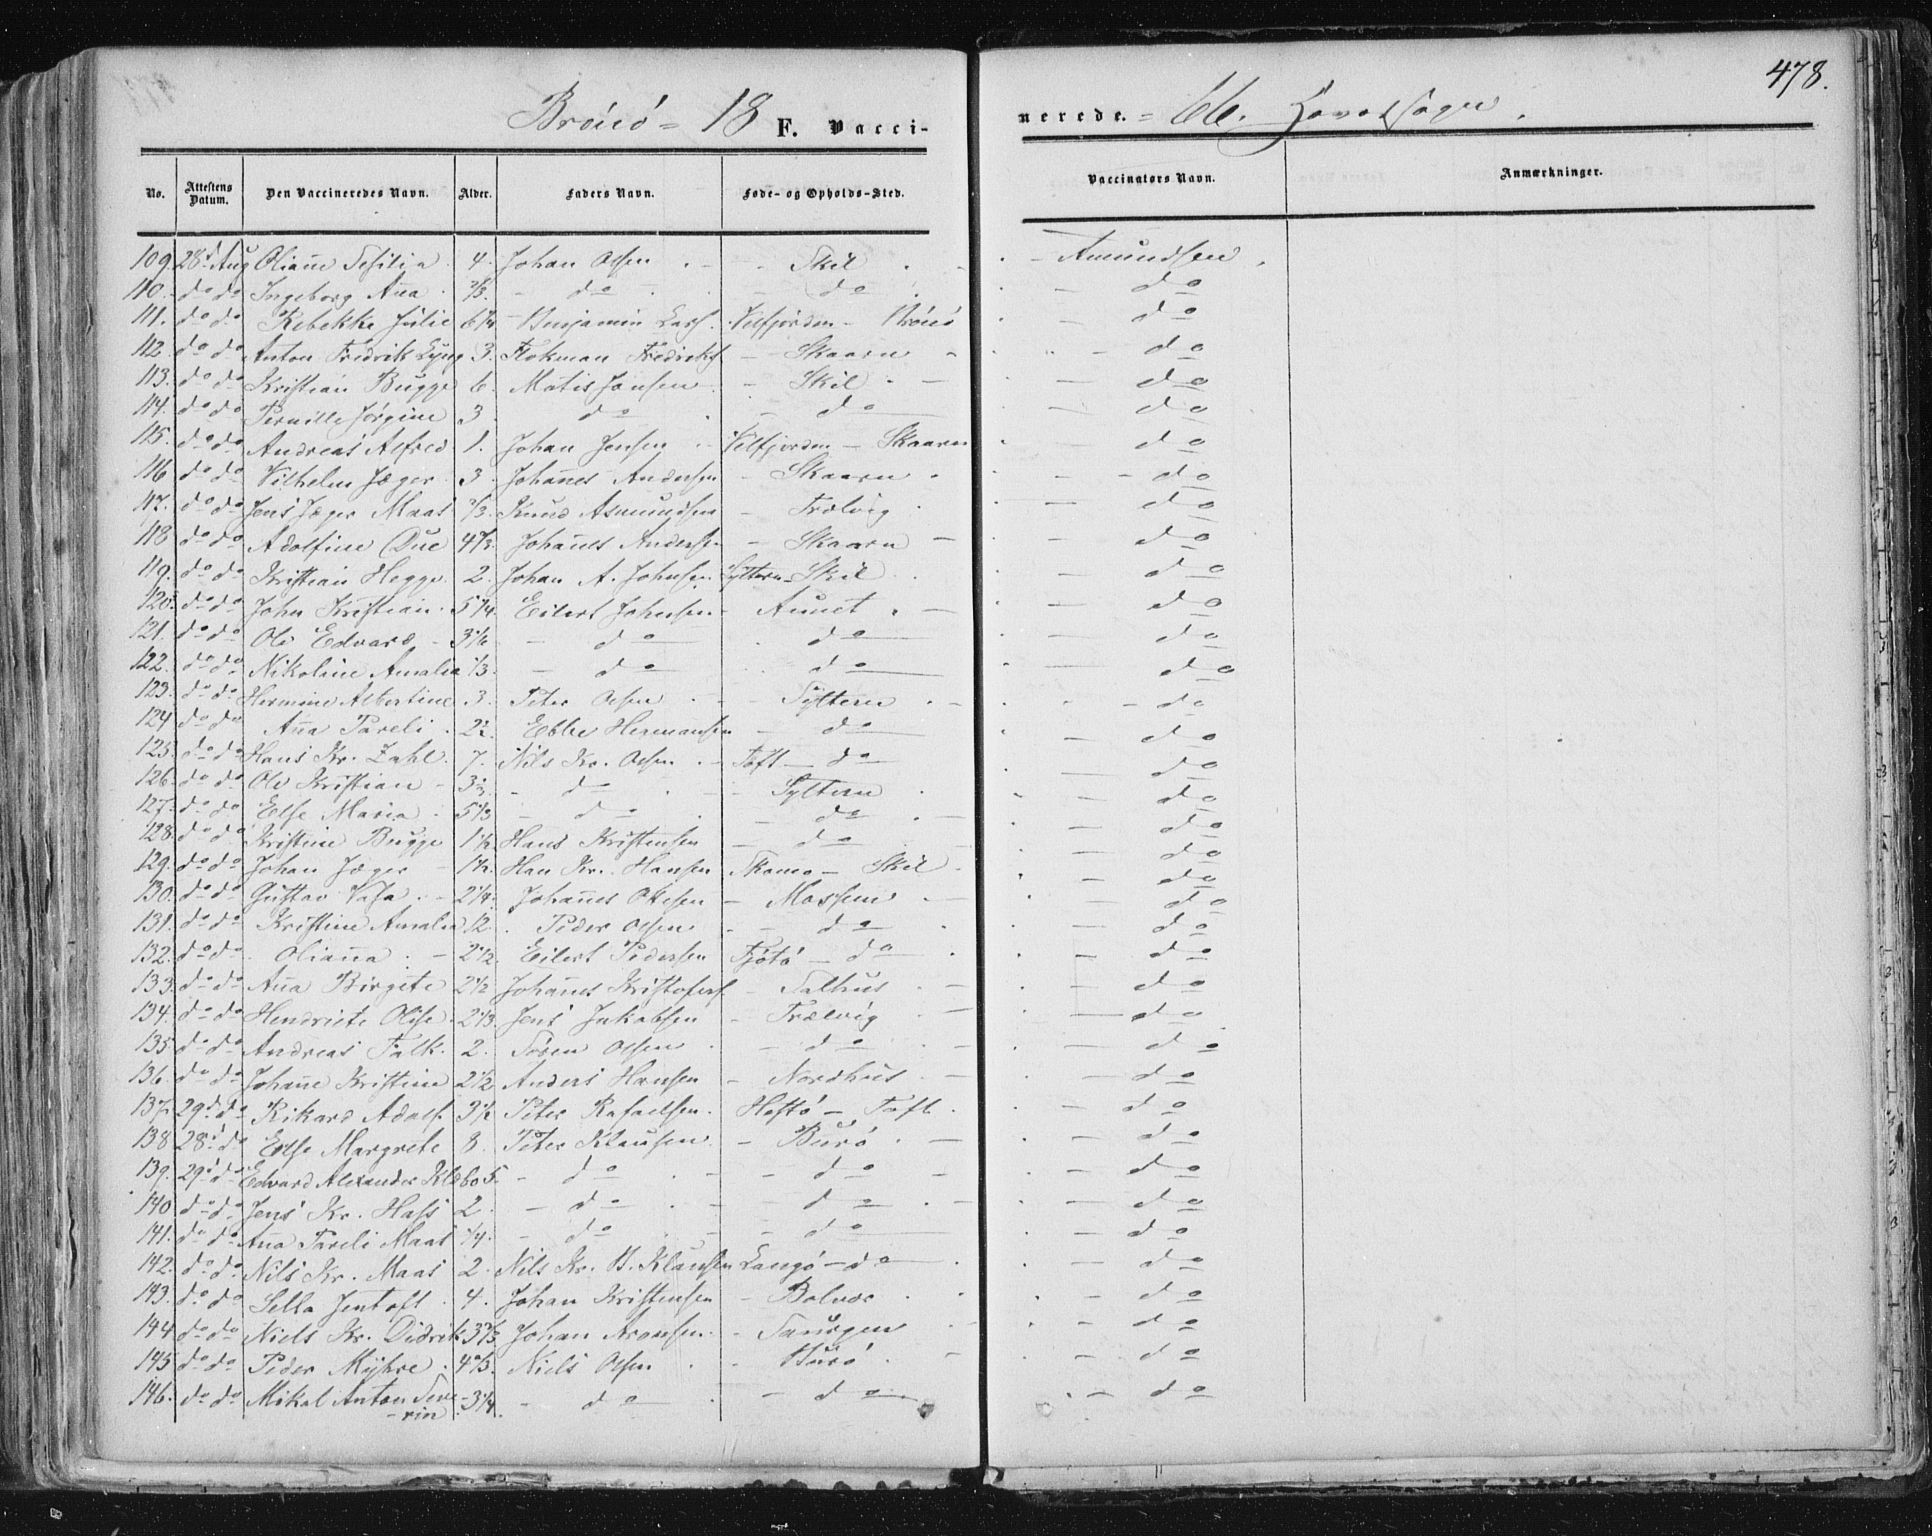 478.
Brönö = 18 F. Vacci-
nerede. = 66. Hovedsogn.
No. Attestens Datum. Den Vaccineredes Navn. Alder. Faders Navn. Føde- og Opholds-Sted. Vaccinators Navn. Anmærkninger.
109. 28d Aug Oliañe Sesilia 4. Johan Olsen - Skil - Amundsen.
110. do do Ingeborg Aña 2/3. do do do
111. do do Rebekke Julie 6 1/4 Benjamin Lars. Velfjorden - Brönö do
112. do do Anton Fredrik Lyng 3. Flokman Fredriks - Skaarn do
113. do do Kristian Bugge 6. Matis Jansen - Skil do
114. do do Pernille Jörgine 3. do do do
115. do do Andreas Alfred 1. Johan Jensen Velfjorden - Skaarn do
116. do do Vilhelm Jæger 3. Johañes Andersen - Skaarn do
117. do do Jens Jæger Maas 2/3. Knud Asmundsen - Trælvig do
118. do do Adolfine Due 4 2/3. Johañes Andersen - Skaarn do
119. do do Kristian Hegge 2. Johan A. Johnsen Syltern - Skil do
120. do do John Kristian 5 1/4. Eilert Johnsen - Aunet do
121. do do Ole Edvard 3 1/6 do do do
122. do do Nikoline Amalia 1/3. do do do
123. do do Hermine Albertine 3. Peter Olsen - Syltern do
124. do do Aña Pareli 2 1/2. Ebbe Hermansen do do
125. do do Hans Kr. Zahl. 7. Nils Kr. Olsen Toft - do do
126. do do Ole Kristian 3 1/3. do - Syltern do
127. do do Else Maria 5 1/3 do do do
128. do do Kristine Bugge 1 1/2 Hans Kristensen do do
129. do do Johan Jæger 1 1/2. Han Kr. Hansen Skomo - Skil do
130. do do Gustav Vasa 2 1/4. Johañes Olesen - Mossem do
131. do do Kristine Amalia 12. Peder Olsen do do
132. do do Oliaña 2 1/2. Eilert Pedersen Tjötö - do do
133. do do Aña Birgete 2 1/2 Johañes Kristofers. - Salhus do
134. do do Hendriete Olise 2 1/3. Jens Jakobsen - Trælvig do
135. do do Andreas Falk. 2. Sören Olsen do do
136. do do Johañe Kristine 2 1/2 Anders Hansen - Nordhus do
137. 29d do Rikard Adolf. 3 1/2 Peter Rafaelsen. Hestö - Toft do
138. 28d do Else Margrete 8. Peter Klausen - Burö do
139. 29d do Edvard Alexander Klæbo 5. do do do
140. do do Jens Kr. Hass 2. do do do
141. do do Aña Pareli Maas 1/4. do do do
142. do do Nils Kr. Maas 2. Nils Kr. B. Klausen Langö - do do
143. do do Sella Jentoft 4. Johan Kristensen - Bolvær do
144. do do Niels Kr. Didrik 3 2/3. Johan Aronsen. do
145. do do Peder Myhre 4 2/3. Niels Olsen - Burö do
146. do do Mikal Anton Seve- 3 1/4. do do do
-rin